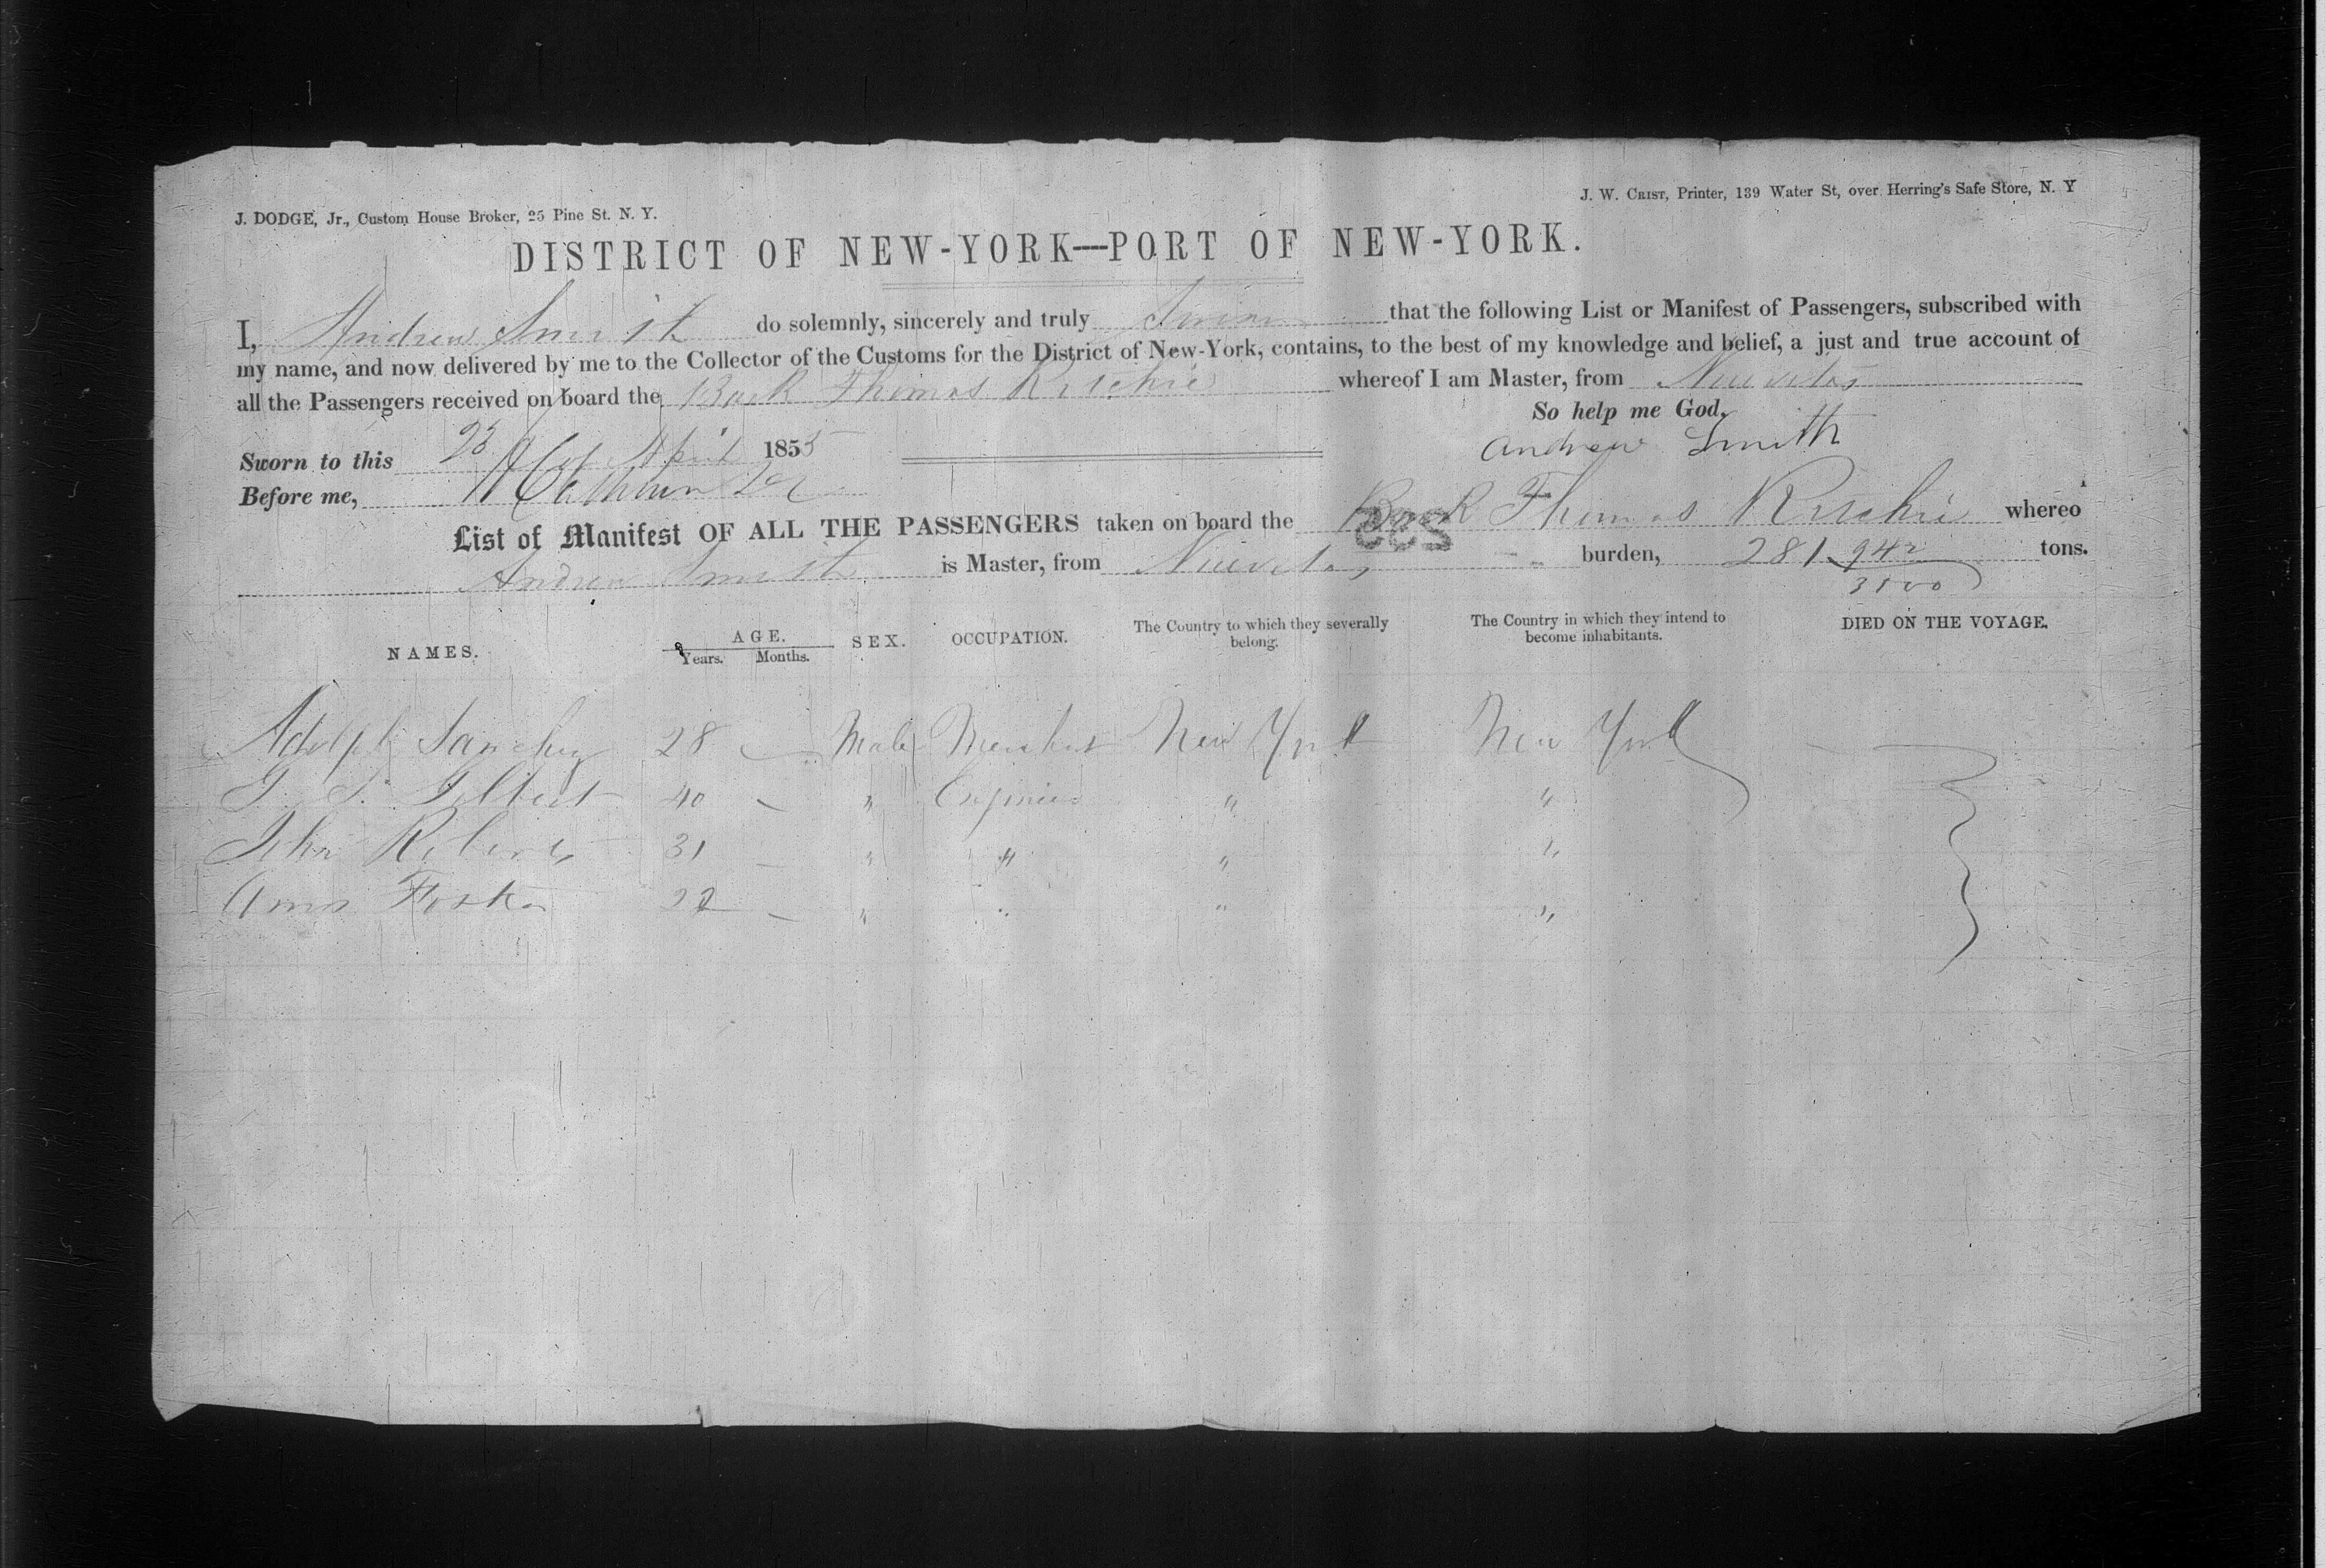 J. DODGE, Jr., Custom House Broker, 25 Pine St. N. Y.
J. W. CRIST, Printer, 139 Water St, over Herring's Safe Store, N. Y
DISTRICT OF NEW-YORK—PORT OF NEW-YORK.
I, Andrew Smith do solemnly, sincerely and truly Swear that the following List or Manifest of Passengers, subscribed with
my name, and now delivered by me to the Collector of the Customs for the District of New-York, contains, to the best of my knowledge and belief, a just and true account of
all the Passengers received on board the Bark Thomas Ritchie whereof I am Master, from Nuevitas
So help me God,
Sworn to this 23 April 1855 Andrew Smith
Before me,
List of Manifest OF ALL THE PASSENGERS taken on board the Bark Thomas Ritchie whereo
Andrew Smith is Master, from Nuevitas burden, 281 tons.
NAMES. AGE. Years. Months. SEX. OCCUPATION. The Country to which they severally belong. The Country in which they intend to become inhabitants. DIED ON THE VOYAGE.
Adolph Sanchez 28 — Male Merchant New York New York
Gilbert 40 — " Engineer " "
John Roberts 31 — " " " "
Amos Foster 22 — " " " "